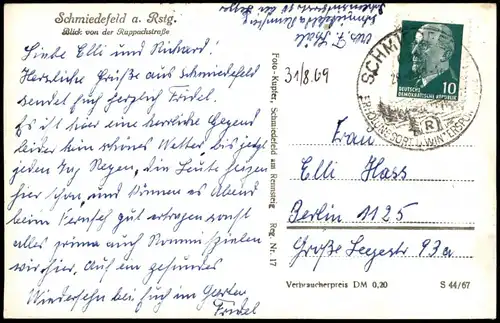 Schmiedefeld a. Rstg.
Blick von der Ruppachstraße
Liebe Elli und Richard!
Herzliche Grüße aus Schmiedefeld
sendet Euch herzlich Fridel.
Es ist hier eine herrliche Gegend
leider kein schönes Wetter, bis jetzt
jeden Tag Regen, die Leute heizen
hier schon, und können es Abend
beim Fernseh gut ertragen sonst
alles prima auch Rommi spielen
wir hier, Auf ein gesundes
Wiedersehn bei Euch im Garten
Fridel
Foto-Kupfer, Schmiedefeld am Rennsteig Reg Nr. 17
31/8.69
Schmiedefeld a Rennsteig
DEUTSCHE
DEMOKRATISCHE REPUBLIK
10
SCHMIEDEFELD
R
ERHOLUNGSORT U. WINTERSPORT
Frau
Elli Hass
Berlin 1125
Große Leegestr 93a
Verbraucherpreis DM 0,20
S 44/67